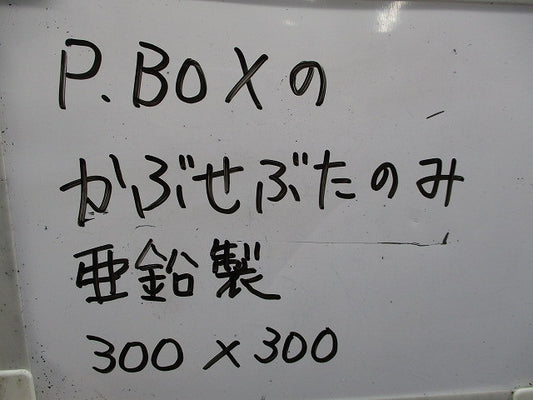 P.BOXの
かぶせぶたのみ
亜鉛製
300×300